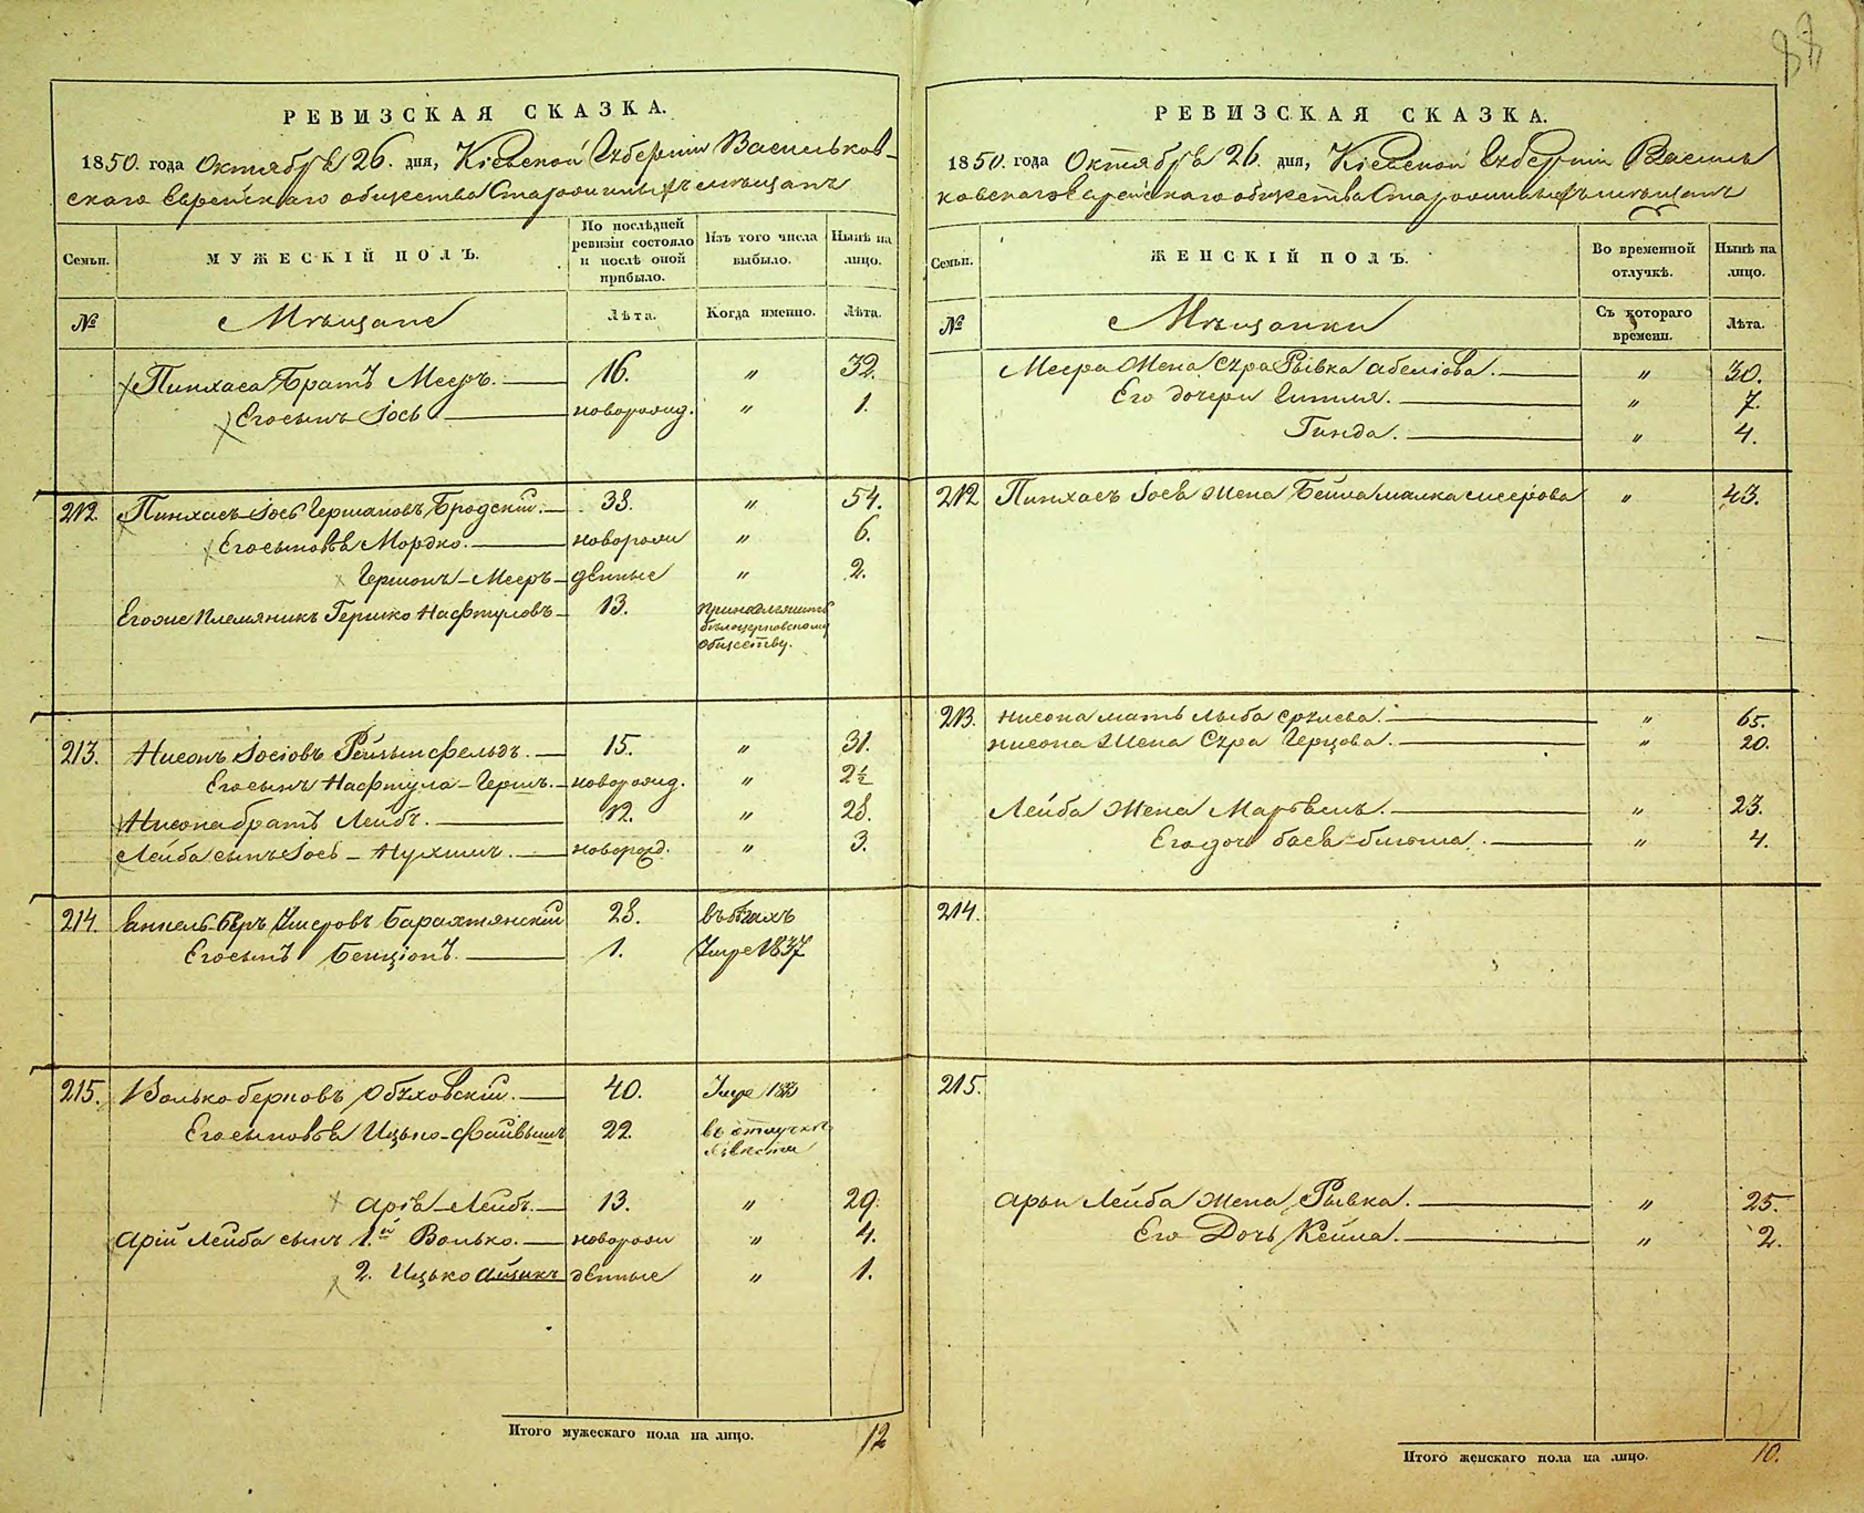 88
РЕВИЗСКАЯ СКАЗКА.
1850. года Октября 26. дня, Кіевской Губерніи Васильков-
скаго Еврейскаго общества Старожилыхъ мѣщанъ
Семьи. МУЖЕСКІЙ ПОЛЪ. По послѣдней ревизіи состояло и послѣ оной прибыло. Изъ того числа выбыло. Нынѣ на лицо.
№ Мѣщане Лѣта. Когда именно. Лѣта.
Пинхаса Братъ Мееръ. 16. " 32.
Его сынъ Іось новорожд. " 1.
212. Пинхасъ-Іось Гершановъ Бродскій. 38. " 54.
Его сыновья Мордко. новорож " 6.
Гершонъ-Мееръ денные " 2.
Его же племяникъ Гершко Нафтуловъ 13. принадлежитъ
бѣлоцерковскому
обществу.
213. Нисонъ Іосіовъ 15. " 31.
Его сынъ Нафтула-Герш. новорожд. " 2½
Нисона братъ Лейбъ. 12. " 28.
Лейба сынъ Іось-Нухимъ. новорожд. " 3.
214. Берь Барахтянскій 28. въ бѣгахъ
Его сынъ Бенціонъ. 1. Умре 1837
215. Волько берковъ Обуховскій. 40. Умре
Его сыновья Ицько-Файвишъ 22. въ отлучкѣ
Арія-Лейбъ. 13. " 29.
Арій Лейба сынъ 1.й Волько. новорож " 4.
2. Ицько Айзикъ денные " 1.
Итого мужескаго пола на лицо. 12
РЕВИЗСКАЯ СКАЗКА.
1850. года Октября 26. дня, Кіевской Губерніи Василь
ковскаго Еврейскаго общества Старожилыхъ мѣщанъ
Семьи. ЖЕНСКІЙ ПОЛЪ. Во временной отлучкѣ. Нынѣ на лицо.
№ Мѣщанки Съ котораго времени. Лѣта.
Меера Жена Сура Рывка абеліова. " 30.
Его дочери " 7.
Гинда. " 4.
212 Пинхасъ Іося Жена Бейла малка меерова " 43.
213. нисона мать лыба " 65.
нисона Жена Сура Герцова. " 20.
Лейба Жена " 23.
Его дочь бася " 4.
214.
215.
Арьи Лейба Жена Рывка. " 25.
Его Дочь Кейла. " 2.
Итого женскаго пола на лицо. 10.